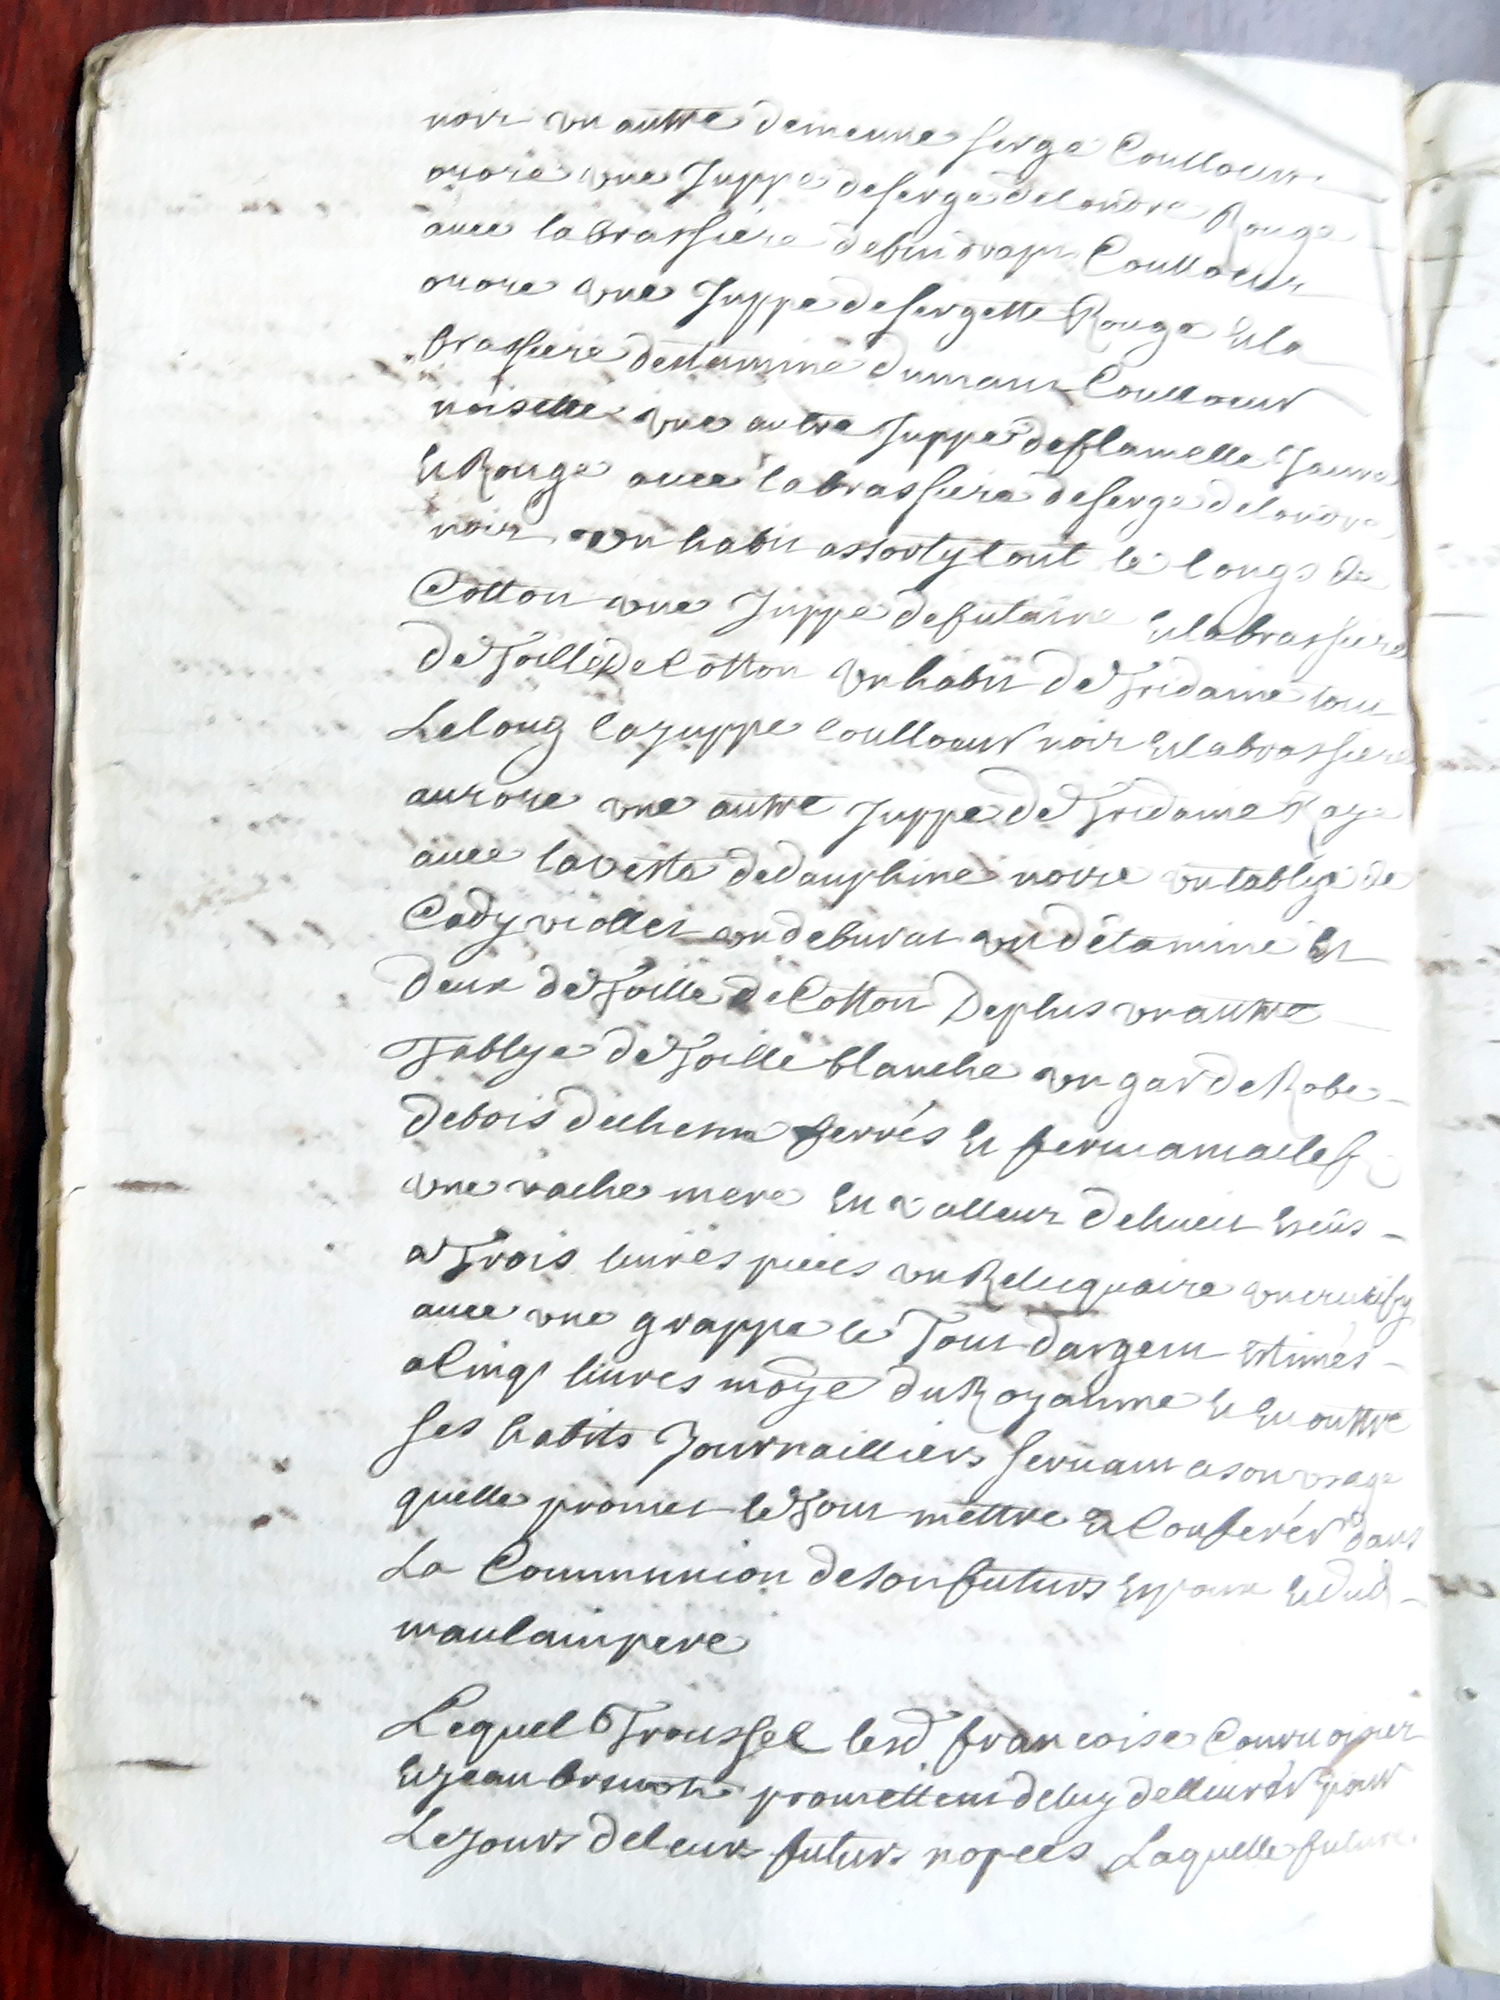 noir un autre demeurre serge Coulloeur
orore une Juppe de serge delondre Rouge
avec la brassiere de bin drapt Coulloeur
orore une Juppe de sergette Rouge et la
brassiere destamine dumans Coulloeur
noisette une autre Juppe de flamelle Jaune
et Rouge avec la brassiere de serge delondre
noir, un habit assorty tout le longs de
Cotton une Juppe de futaine et la brassiere
de Toille de Cotton un habit de Tridaine tout
Le long la juppe coulloeur noir et la brassiere
aurore une autre Juppe de Tridaine Raye
avec la veste de dauphine noire un tablye de
Cady viollet un de burat un détamine et
deux de Toille de Cotton De plus un autre
Tablye de Toille blanche un garde Robe
de bois de chesne ferrés et fermamt a clef
une vache mere en valleur de huict escus
a Trois livres pieces un Relicquaire un crucifix
avec une grappe le Tout dargent estimés
a Cinq livres moñoye du Royaume et en outtre
ses habits Journailliers servant a son usage
quelle promet le Tout mettre et Conferér dans
La Communion de son futurs espoux et dud
maulain pere
Lequel Troussel lesd francoise Courvoisier
et jean promettent de luy dellivrér pour
Le jours de leur futurs nopces Laquelle future